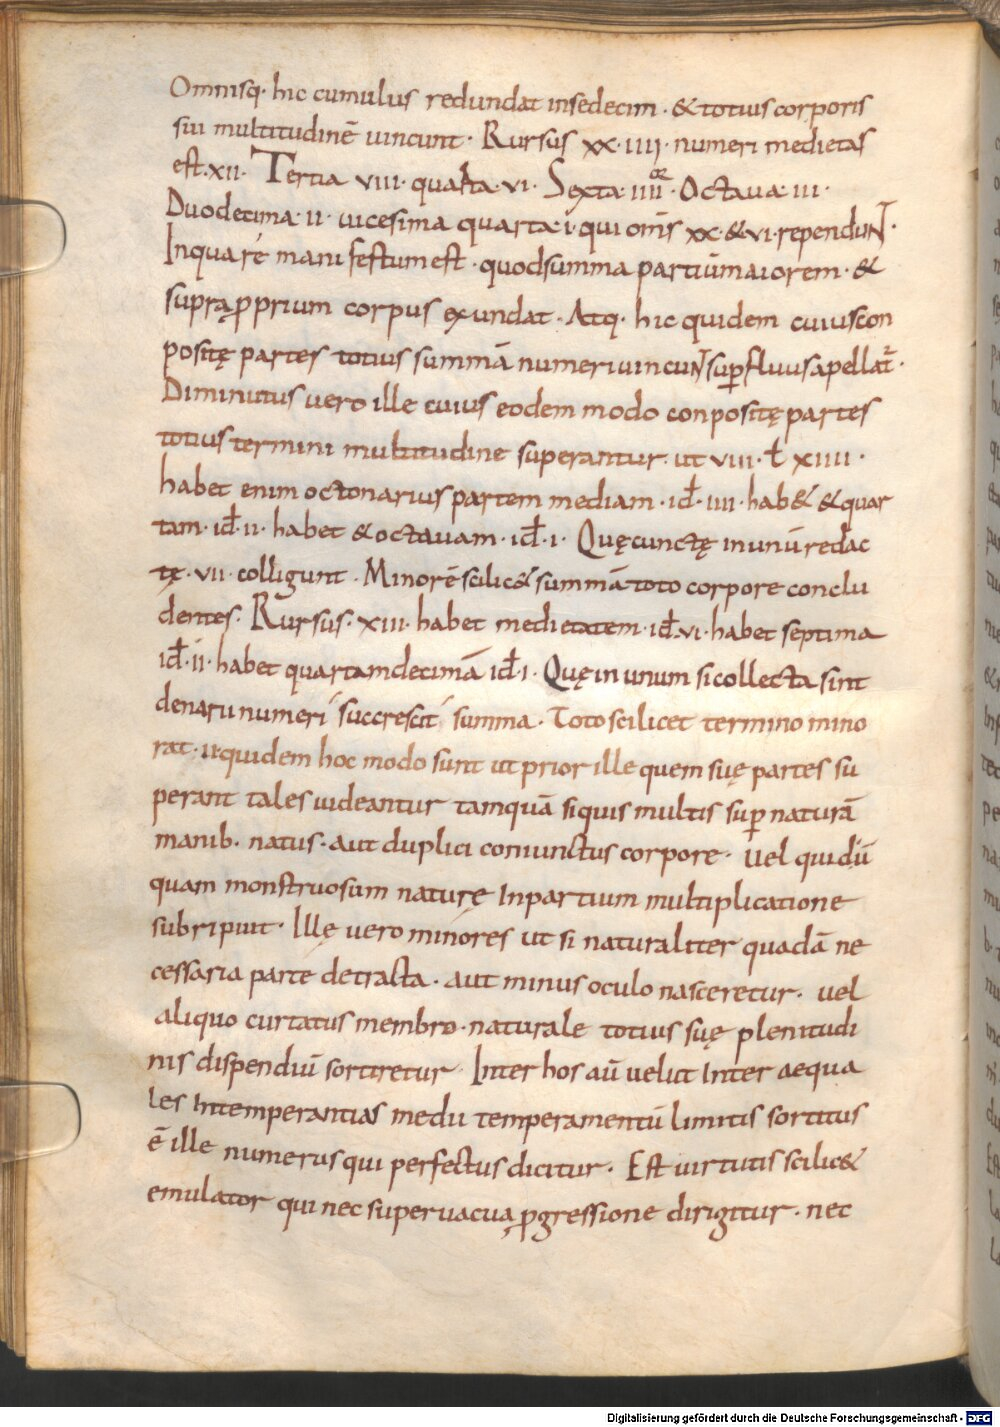 Omnisq· hic cumulus redundat insedecim · & totius corporis
sui multitudinē uincunt · Rursus xx·iiii· numeri medietas
est·xii· Tertia viii· quarta·vi· Sexta iiii · Octaua iii ·
Duodecima·ii· uicesima quarta·i·qui om̄s xx·&vi·rependunt·
Inquare manifestumest · quodsumma partiūmaiorem · &
suprąp̱prium corpus exundat · Atq· hic quidem cuiuscon
positę partes totius summā numeriuincunt sup̱fluusapellat̄·
Diminutus uero ille cuius eodem modo conpositę partes
totius termini multitudine superantur · ut viii· ł xiiii ·
habet enim octonarius partem mediam · id̄· iiii · hab& & quar
tam· id̄· ii · habet & octauam · id̄· i · Quęcunctę inunū redac
tę · vii · colligunt · Minorē scilic& summā toto corpore conclu
dentes · Rursus · xiiii · habet medietatem · id̄·vi· habet septima
id̄· ii · habet quartamdecimā id̄· i · Quę in unum si collecta sint
denarii numeri succrescit summa · Toto scilicet termino mino
rat · iiquidem hoc modo sunt ut prior ille quem suę partes su
perant tales uideantur tamquā siquis multis sup̱ naturā
manib· natus · aut duplici coniunctus corpore · uel quidū
quam monstruosum naturę Inpartium multiplicatione
subripuit · Illę uero minores ut si naturaliter quadā ne
cessaria parte detracta · aut minus oculo nasceretur · uel
aliquo curtatus membro · naturale totius suę plenitudi
nis dispendiū sortiretur · Inter hos aū uelut Inter aequa
les Intemperantias medii temperamentū limitis sortitus
ē ille numerus qui perfectus dicitur · Est uirtutis scilic&
emulator qui nec superuacuą p̱gressione dirigitur · nec
Digitalisierung gefördert durch die Deutsche Forschungsgemeinschaft - DFG